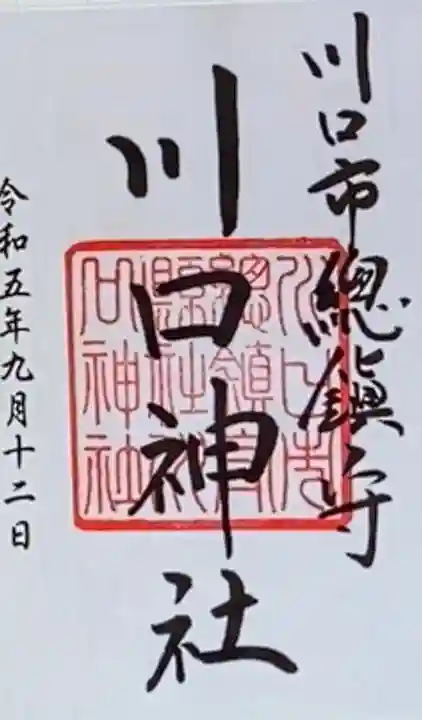 川口市總鎮守
川口神社
令和五年九月十二日